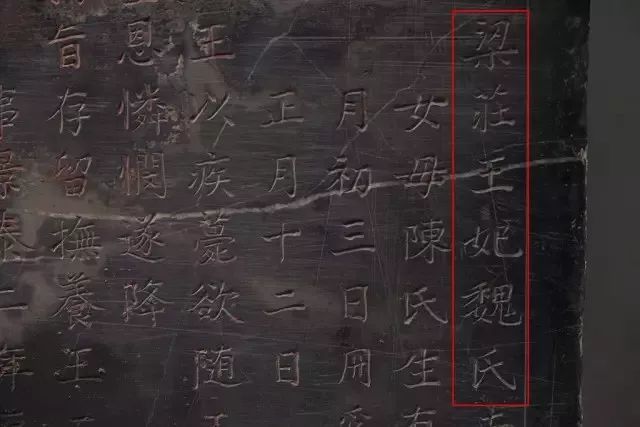 梁莊王妃魏氏
女母陳氏生有
月初三日冊
正月十二日
王以疾薨欲随
恩憐憫遂降
旨存留撫養王
景泰二年